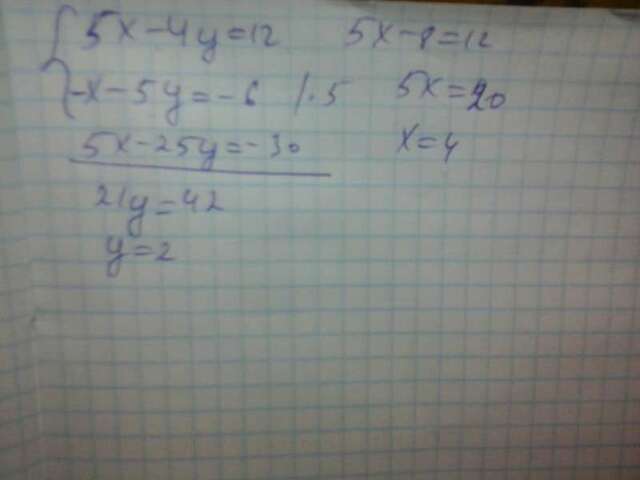 5x-4y=12
-x-5y=-6 /·5
5x-25y=-30
21y=42
y=2
5x-8=12
5x=20
x=4